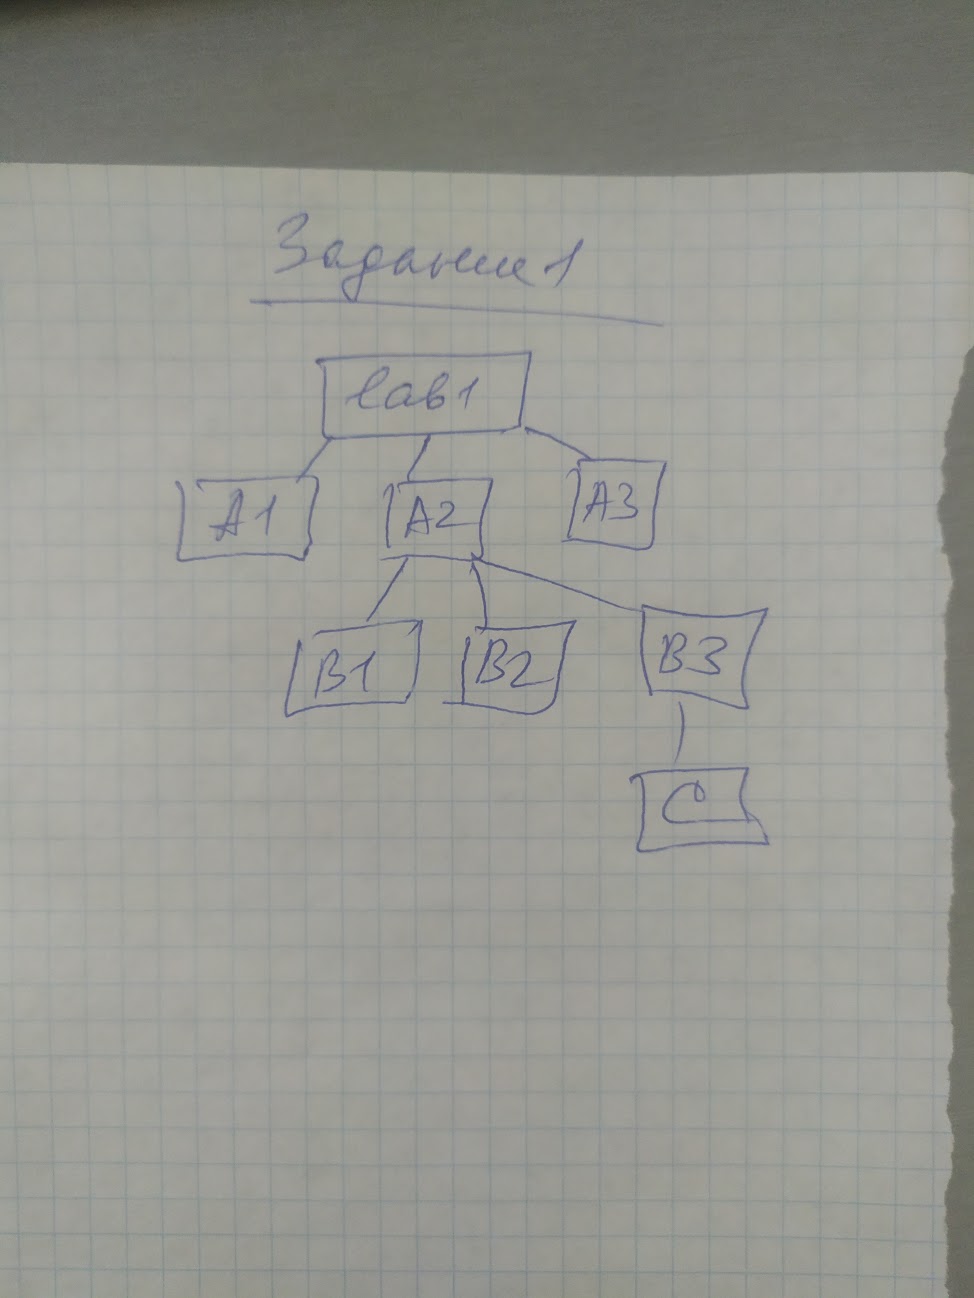 Задание 1
lab1
A1 A2 A3
B1 B2 B3
C